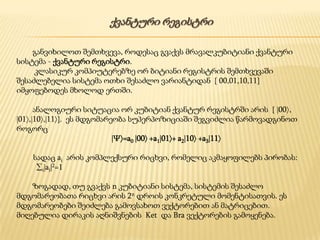 ქვანტური რეგისტრი
განვიხილოთ შემთხვევა, როდესაც გვაქვს მრავალკუბიტიანი ქვანტური
სისტემა - ქვანტური რეგისტრი.
კლასიკურ კომპიუტერებზე ორ ბიტიანი რეგისტრის შემთხვევაში
შესაძლებელია სისტემა ოთხი შესაძლო ვარიანტიდან [ 00,01,10,11]
იმყოფებოდეს მხოლოდ ერთში.
ანალოგიური სიტუაცია ორ კუბიტიან ქვანტურ რეგისტრში არის [ |00⟩,
|01⟩,|10⟩,|11⟩]. ეს მდგომარეობა სუპერპოზიციაში შეგვიძლია წარმოვადგინოთ
როგორც
|Ψ⟩=a₀ |00⟩ +a₁|01⟩+ a₂|10⟩ +a₃|11⟩
სადაც aᵢ არის კომპლექსური რიცხვი, რომელიც აკმაყოფილებს პირობას:
∑ᵢ|aᵢ|²=1
ზოგადად, თუ გვაქვს n კუბიტიანი სისტემა, სისტემის შესაძლო
მდგომარეობათა რიცხვი არის 2ⁿ დროის კონკრეტული მომენტისათვის. ეს
მდგომარეობები შეიძლება გამოვსახოთ ვექტორებით ან მატრიცებით.
მიღებულია დირაკის აღნიშვნების Ket და Bra ვექტორების გამოყენება.